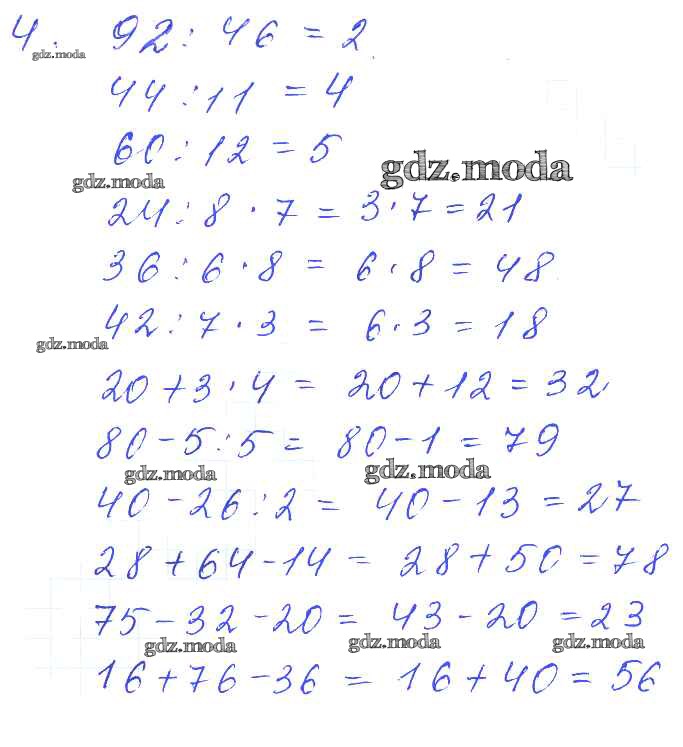 4. 92 : 46 = 2
gdz.moda
44 : 11 = 4
60 : 12 = 5
gdz.moda
gdz.moda
24 : 8 · 7 = 3 · 7 = 21
36 : 6 · 8 = 6 · 8 = 48
42 : 7 · 3 = 6 · 3 = 18
gdz.moda
20 + 3 · 4 = 20 + 12 = 32
80 - 5 : 5 = 80 - 1 = 79
gdz.moda gdz.moda
40 - 26 : 2 = 40 - 13 = 27
28 + 64 - 14 = 28 + 50 = 78
75 - 32 - 20 = 43 - 20 = 23
gdz.moda gdz.moda gdz.moda
16 + 76 - 36 = 16 + 40 = 56